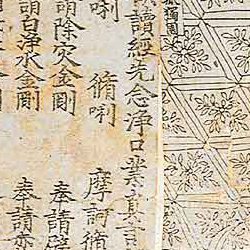 獨園
讀經先念淨口業真言
唎　脩唎　摩訶脩
請除灾金剛　奉請辟
請白淨水金剛　奉請